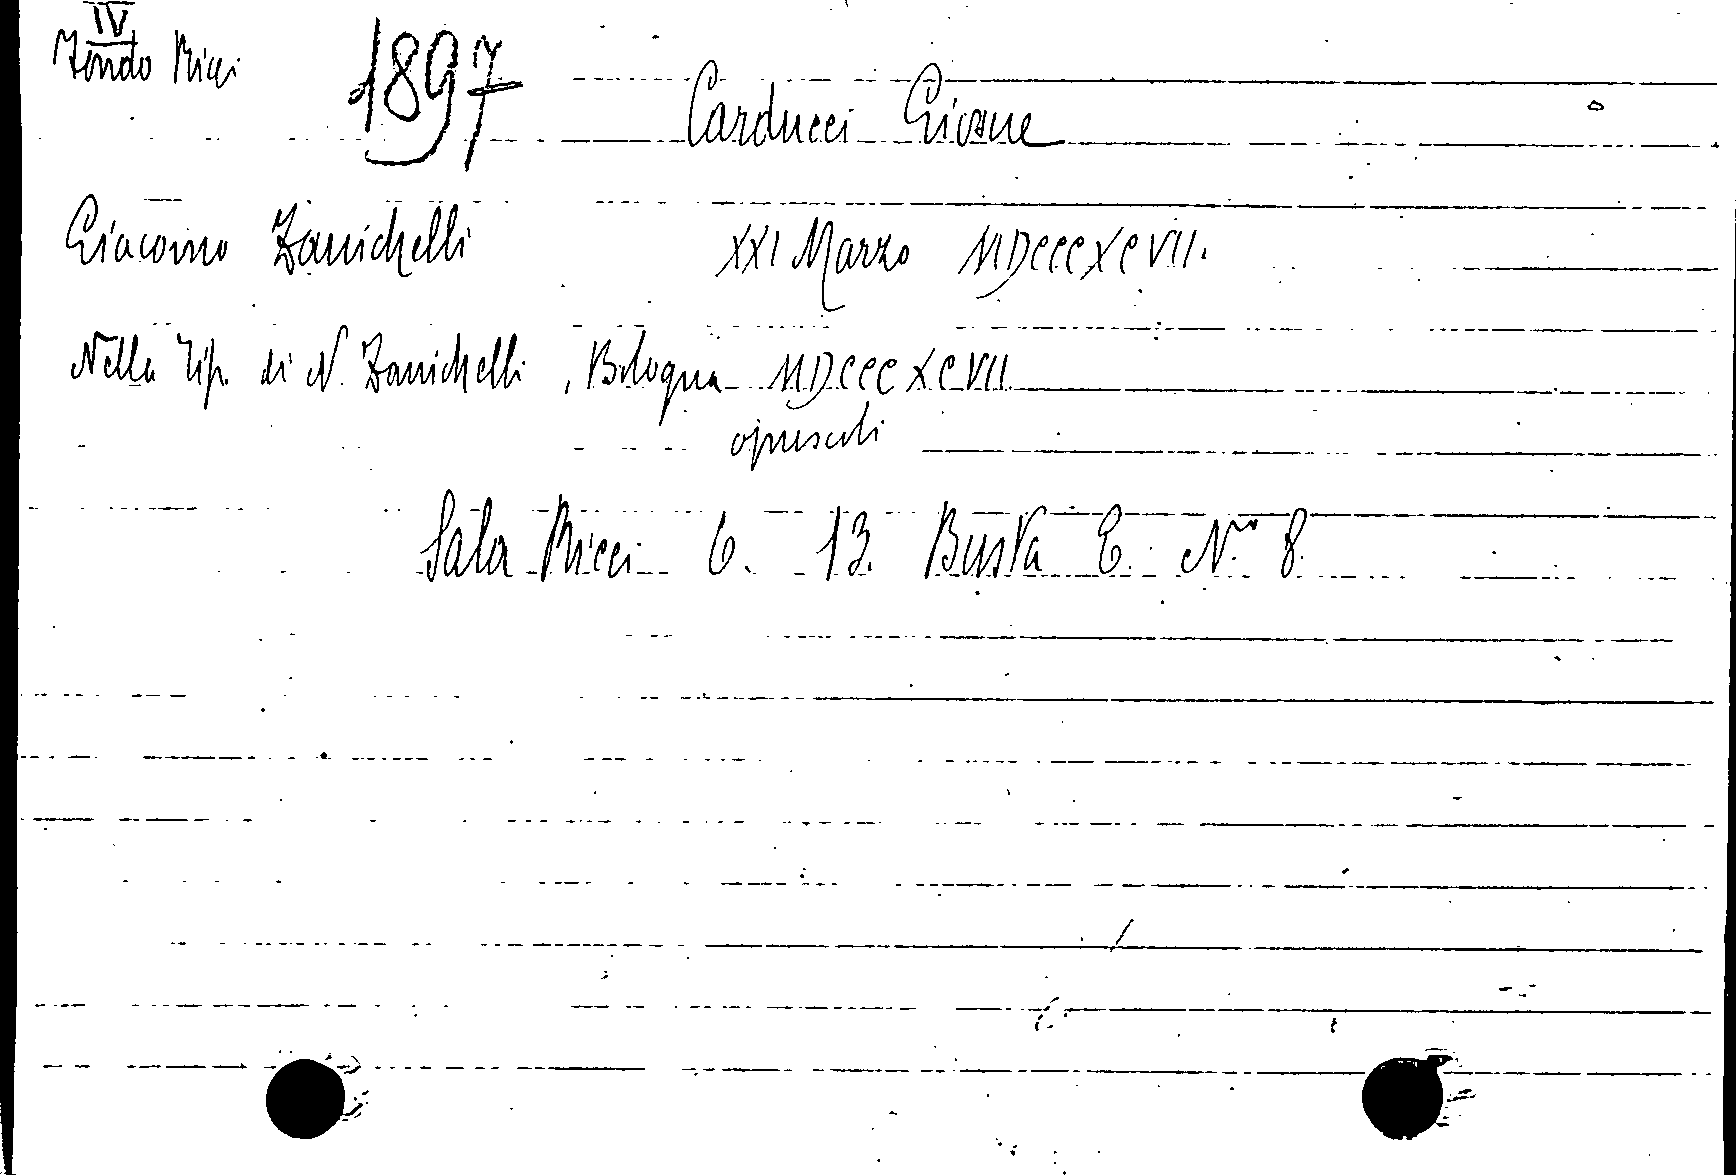 IV
Fondo Ricci 1897
Carducci Giosue
Giacomo Zanichelli XXI Marzo MDCCCXCVII.
Nella Tip. di N. Zanichelli, Bologna MDCCCXCVII
opuscoli
Sala Ricci 6. 13. Busta E. No 8.